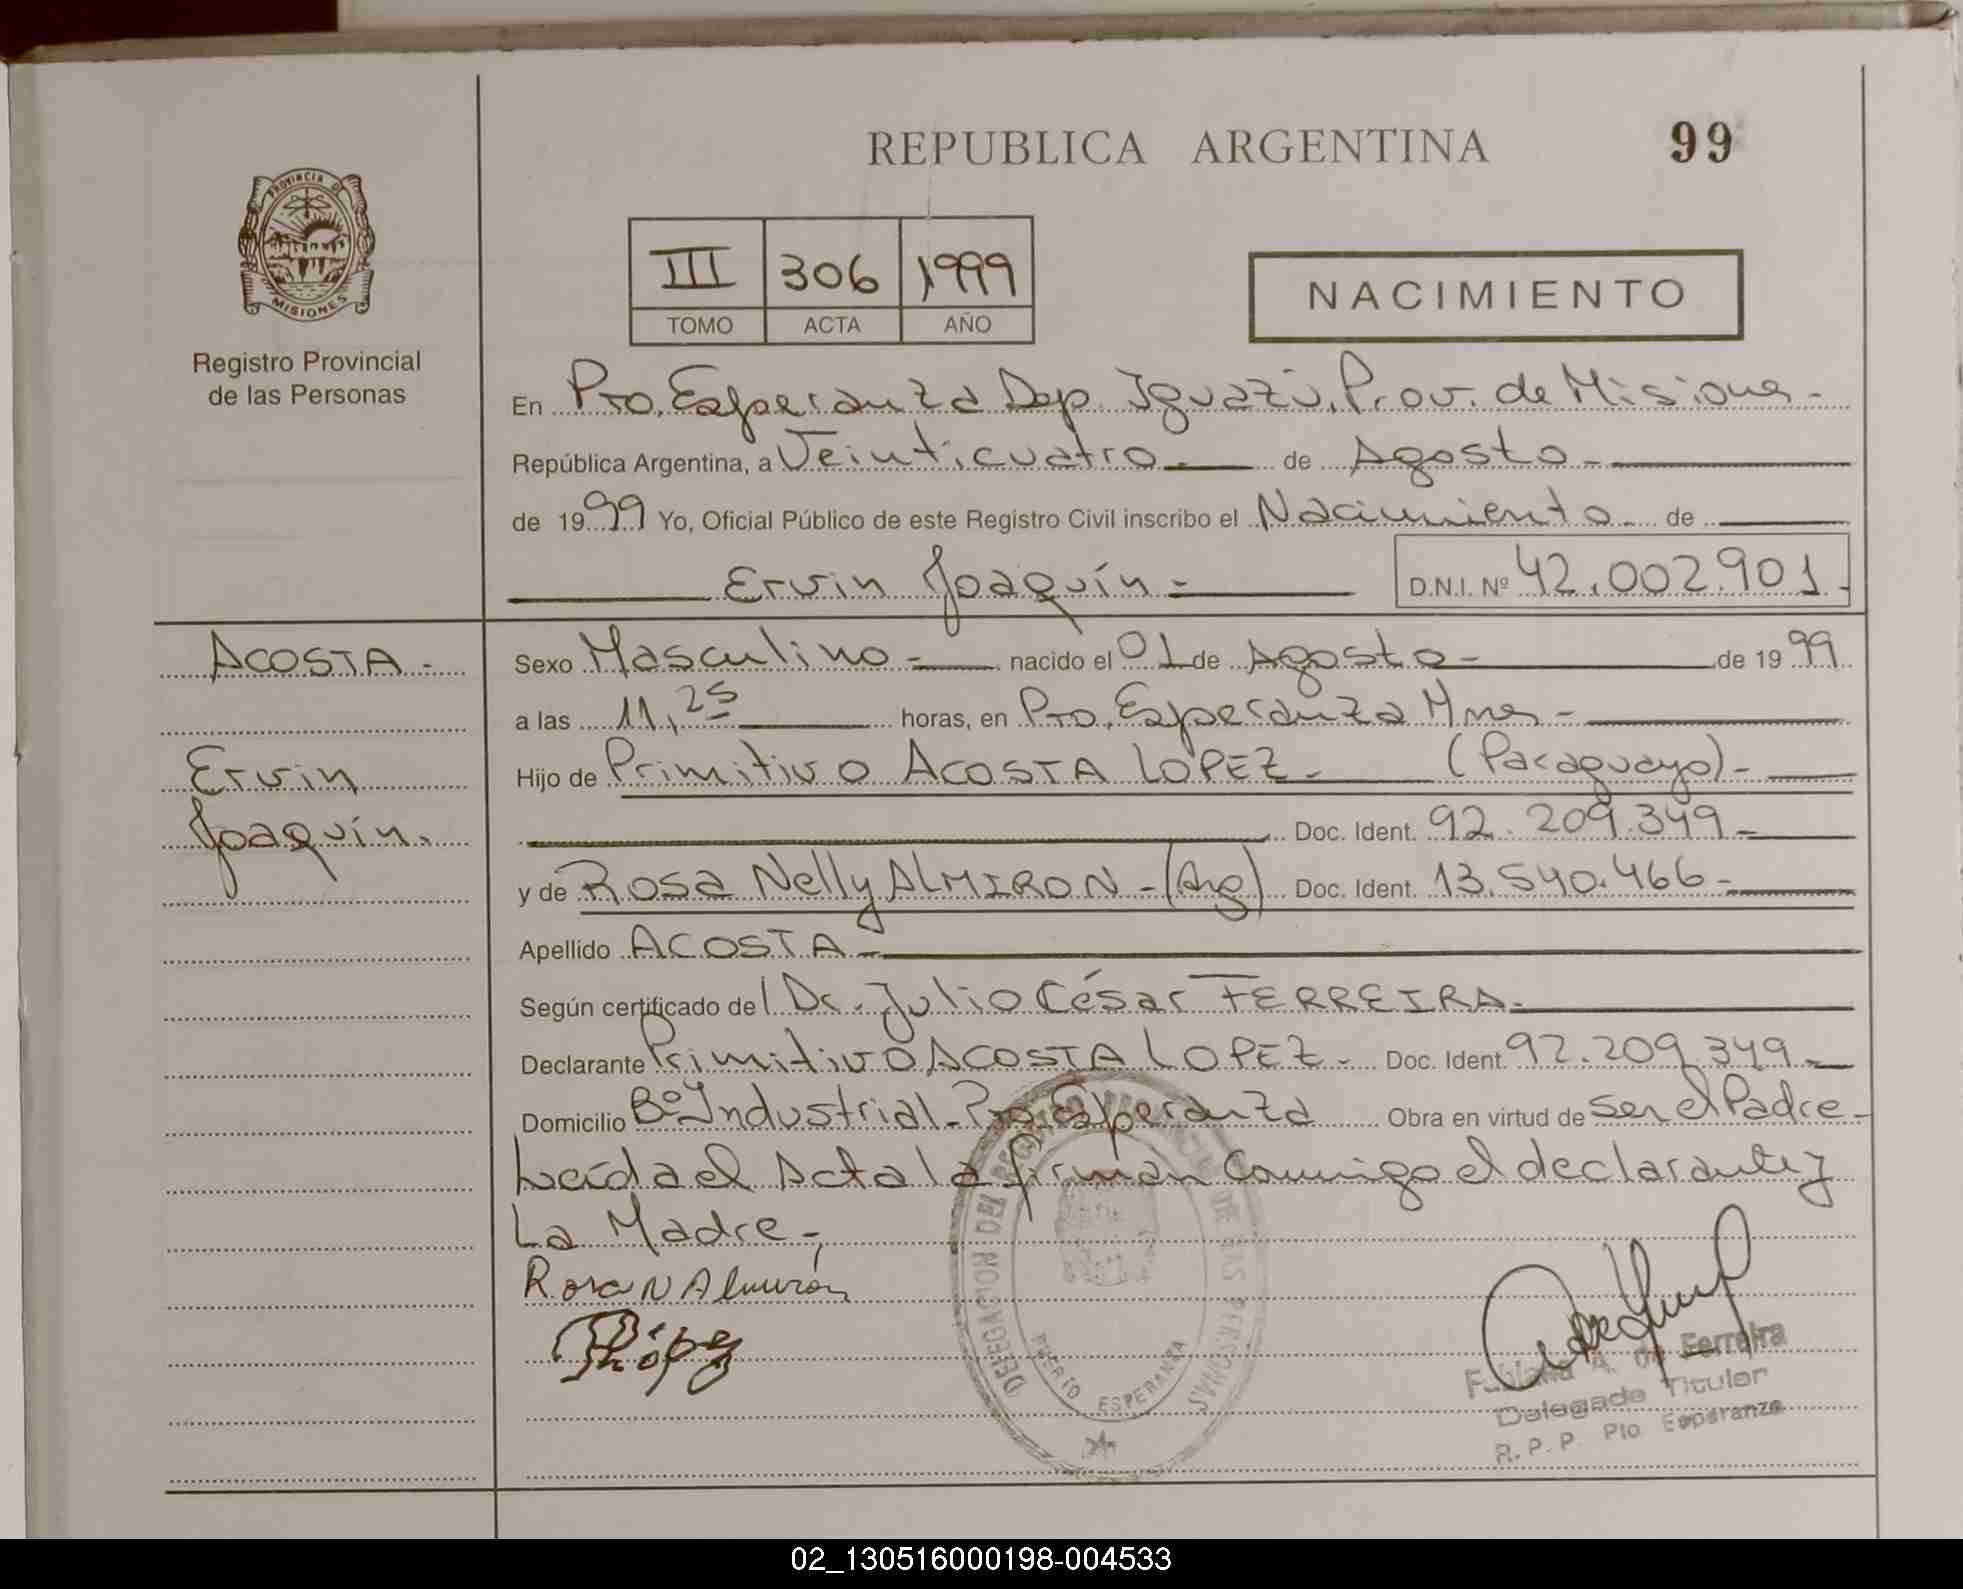 REPUBLICA ARGENTINA
99
PROVINCIA DE
MISIONES
Registro Provincial
de las Personas
III 306 1999
TOMO ACTA AÑO
NACIMIENTO
En Pto. Esperanza Dep. Iguazú. Prov. de Misiones -
República Argentina, a Veinticuatro - de Agosto -
de 1999 Yo, Oficial Público de este Registro Civil inscribo el Nacimiento de
Ervin Joaquín = D.N.I. Nº 42.002.901 -
ACOSTA -
Ervin
Joaquín.
Sexo Masculino - nacido el 01 de Agosto - de 1999
a las 11,25 horas, en Pto. Esperanza Mnes -
Hijo de Primitivo ACOSTA LOPEZ - (Paraguayo) -
Doc. Ident. 92.209.349 -
y de Rosa Nelly ALMIRON - (Arg) Doc. Ident. 13.540.466 -
Apellido ACOSTA -
Según certificado del Dr. Julio César FERREIRA -
Declarante Primitivo ACOSTA LOPEZ - Doc. Ident. 92.209.349 -
Domicilio Bº Industrial - Pto. Esperanza Obra en virtud de ser el Padre -
Leída el Acta la firman conmigo el declarante y
La Madre -,
Rosa N Almirón
López
DELEGACION DEL REGISTRO PROVINCIAL DE LAS PERSONAS
PUERTO ESPERANZA
Fabiana A. de Ferreira
Delegada Titular
R. P. P. Pto Esperanza
02_130516000198-004533